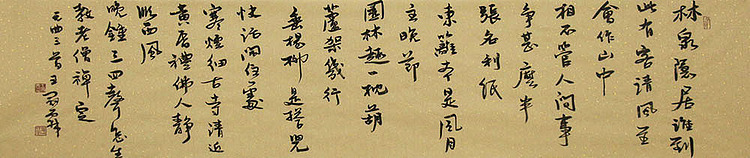 林泉隱居誰到
此有客清風至
會作山中
相不管人間事
爭甚麼半
張名利紙
東籬本是風月
主晚節
園林趣一枕葫
蘆架幾行
垂楊柳是搭兒
快活閒住處
寒煙細古寺清近
黃昏禮佛人靜
順西風
晚鐘三四聲怎生
教老僧禪定
元曲三首王